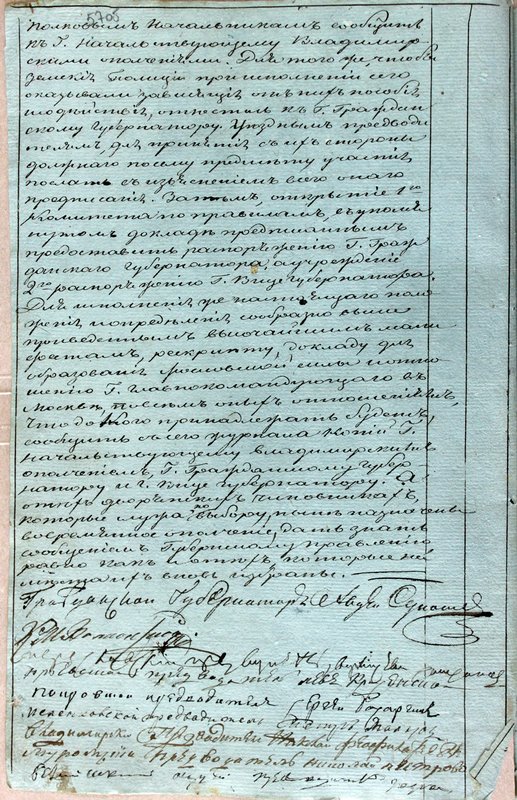 5705
полковымъ Начальникамъ сообщить
къ Г. Начальствующему Владимир-
скимъ ополченіемъ. Для того же чтобы
земскія Полиціи при исполненіи сего
оказывали зависящія отъ нихъ пособія
и содѣйствія, отнестись къ Г. Граждан-
скому Губернатору. Уѣзднымъ предводи
телямъ для принятія съ ихъ стороны
должнаго по сему предмѣту участія
послать съ изъясненіемъ всего онаго
предписанія. За тѣмъ, открытіе 1го
Комитета по правиламъ, въ упомя
нутомъ докладѣ предписаннымъ
предоставить распоряженію Г. Граж
данскаго Губернатора, а учрежденіе
2го распоряженію Г. Вице Губернатора.
Для исполненія же настоящаго поло
женія и опредѣленія сообразно выше
приведеннымъ высочайшимъ мани
фестамъ, рескрипту, докладу для
образованія Московской силы и отно
шенію Г. Главнокомандующаго въ
Москвѣ, по всѣмъ онымъ отношеніямъ,
что до кого принадлежать будетъ,
сообщить съ сего журнала копіи Г.
начальствующему владимирскимъ
ополченіемъ, Г. Гражданскому Губер-
натору и Г. Вице Губернатору. А
о тѣхъ дворянскихъ чиновникахъ,
которые служа по выбору, нынѣ назначены
во временное ополченіе, дать знать
сообщеніемъ Губернскому правленію
равно какъ и о тѣхъ, которые на
мѣста ихъ вновь избраны.
Гражданской Губернаторъ Авдей Супонев
предводитель
предводитель
предводитель
Владимирский Предводитель
Предводитель Николай